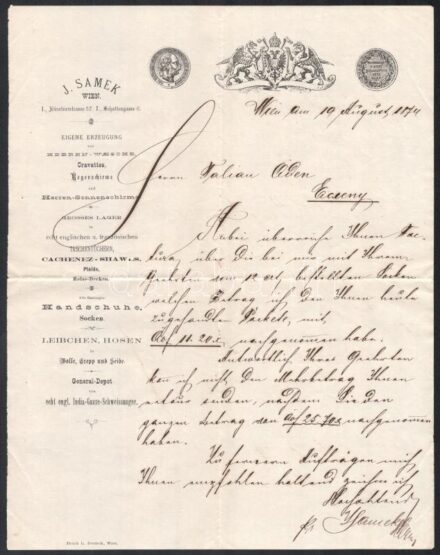 J. SAMEK
WIEN.
EIGENE ERZEUGUNG
von
HERREN-WÆSCHE,
Cravattes,
Regenschirme
und
Herren-Sonnenschirme
GROSSES LAGER
echt englischen u. französischen
TASCHENTÜCHER,
CACHENEZ-SHAWLS,
Plaids,
Reise-Decken.
Handschuhe,
Socken.
LEIBCHEN, HOSEN
in
Wolle, Crepp und Seide.
General-Depot
von
echt engl. India-Gauze-Schweisssauger.
Wien am 19 August 1874
Herrn Talian Eden
Anbei überreiche Ihnen Fac
tura, über Die bei mir mit Ihrem
Geehrten vom 12. crt, bestellten Socken
welchen Betrag ich den Ihnen heute
zugesandten Packets, mit
öof 11.20x nachgenommen habe.
Antwortlich Ihres Geehrten
kan ich nicht den Mehrbetrag Ihnen
retour senden, nachdem Sie den
ganzen Betrag von öof 25.70x nachgenommen
haben.
Zu fernern Aufträgen mich
Ihnen empfohlen haltend zeichne ich
Hochachtend
JSamek
Wien.